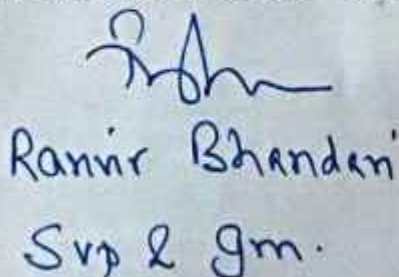 Ranvir Bhandari
Svp & gm.